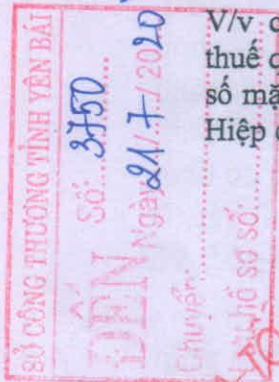 V/v c
thuế c
số mặ
Hiệp c
SỞ CÔNG THƯƠNG TỈNH YÊN BÁI
ĐẾN
Số: 3750
Ngày 21/7/2020
Chuyển:
Lưu hồ sơ số: